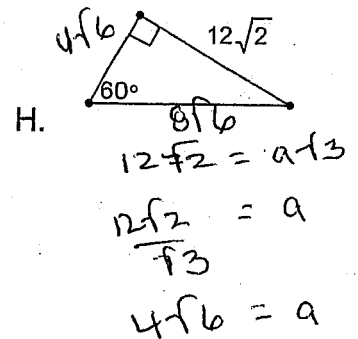 4√6
12√2
60°
8√6
H.
12√2 = a√3
12√2/√3 = a
4√6 = a